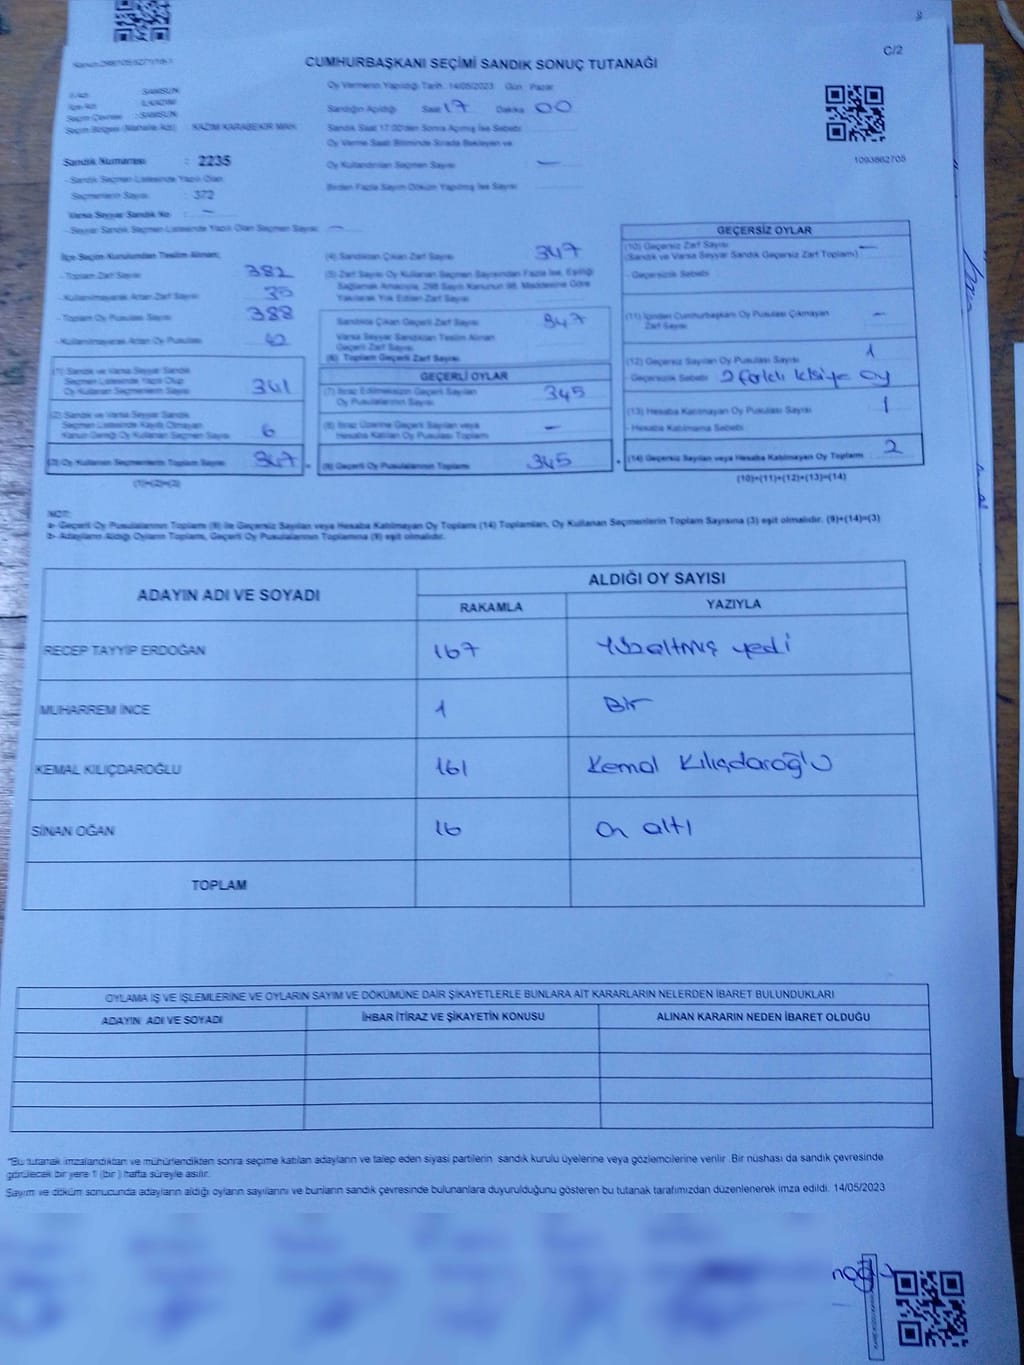 C/2
CUMHURBAŞKANI SEÇİMİ SANDIK SONUÇ TUTANAĞI
Oy Vermenin Yapıldığı Tarih: 14/05/2023 Gün: Pazar
İl Adı : SAMSUN
İlçe Adı : İLKADIM
Seçim Çevresi : SAMSUN
Seçim Bölgesi (Mahalle Adı) : KAZIM KARABEKİR MAH.
Sandığın Açıldığı Saat 17 Dakika 00
Sandık Saat 17:00'den Sonra Açılmış İse Sebebi
Oy Verme Saati Bitiminde Sırada Bekleyen ve
Oy Kullandırılan Seçmen Sayısı —
Birden Fazla Sayım Döküm Yapılmış İse Sayısı
1093862705
Sandık Numarası : 2235
- Sandık Seçmen Listesinde Yazılı Olan
Seçmenlerin Sayısı : 372
Varsa Seyyar Sandık No : —
- Seyyar Sandık Seçmen Listesinde Yazılı Olan Seçmen Sayısı —
İlçe Seçim Kurulundan Teslim Alınan;
- Toplam Zarf Sayısı 382
- Kullanılmayarak Artan Zarf Sayısı 35
- Toplam Oy Pusulası Sayısı 388
- Kullanılmayarak Artan Oy Pusulası
(1) Sandık ve Varsa Seyyar Sandık
Seçmen Listesinde Yazılı Olup
Oy Kullanan Seçmenlerin Sayısı 341
(2) Sandık ve Varsa Seyyar Sandık
Seçmen Listesinde Kayıtlı Olmayan
Kanun Gereği Oy Kullanan Seçmen Sayısı 6
(3) Oy Kullanan Seçmenlerin Toplam Sayısı 347
(1)+(2)=(3)
(4) Sandıktan Çıkan Zarf Sayısı 347
(5) Zarf Sayısı Oy Kullanan Seçmen Sayısından Fazla İse, Eşitliği
Sağlamak Amacıyla, 298 Sayılı Kanunun 98. Maddesine Göre
Yakılarak Yok Edilen Zarf Sayısı
Sandıkta Çıkan Geçerli Zarf Sayısı 347
Varsa Seyyar Sandıktan Teslim Alınan
Geçerli Zarf Sayısı
(6) Toplam Geçerli Zarf Sayısı
GEÇERLİ OYLAR
(7) İtiraz Edilmeksizin Geçerli Sayılan
Oy Pusulalarının Sayısı 345
(8) İtiraz Üzerine Geçerli Sayılan veya
Hesaba Katılan Oy Pusulası Toplamı —
(9) Geçerli Oy Pusulalarının Toplamı 345
GEÇERSİZ OYLAR
(10) Geçersiz Zarf Sayısı —
(Sandık ve Varsa Seyyar Sandık Geçersiz Zarf Toplamı)
- Geçersizlik Sebebi
(11) İçinden Cumhurbaşkanı Oy Pusulası Çıkmayan
Zarf Sayısı —
(12) Geçersiz Sayılan Oy Pusulası Sayısı 1
- Geçersizlik Sebebi 2 farklı kişiye oy
(13) Hesaba Katılmayan Oy Pusulası Sayısı 1
- Hesaba Katılmama Sebebi
(14) Geçersiz Sayılan veya Hesaba Katılmayan Oy Toplamı 2
(10)+(11)+(12)+(13)=(14)
NOT:
a- Geçerli Oy Pusulalarının Toplamı (9) ile Geçersiz Sayılan veya Hesaba Katılmayan Oy Toplamı (14) Toplamları, Oy Kullanan Seçmenlerin Toplam Sayısına (3) eşit olmalıdır. (9)+(14)=(3)
b- Adayların Aldığı Oyların Toplamı, Geçerli Oy Pusulalarının Toplamına (9) eşit olmalıdır.
ADAYIN ADI VE SOYADI
ALDIĞI OY SAYISI
RAKAMLA YAZIYLA
RECEP TAYYİP ERDOĞAN 167 Yüzaltmış yedi
MUHARREM İNCE 1 Bir
KEMAL KILIÇDAROĞLU 161 Kemal Kılıçdaroğlu
SİNAN OĞAN 16 On altı
TOPLAM
OYLAMA İŞ VE İŞLEMLERİNE VE OYLARIN SAYIM VE DÖKÜMÜNE DAİR ŞİKAYETLERLE BUNLARA AİT KARARLARIN NELERDEN İBARET BULUNDUKLARI
ADAYIN ADI VE SOYADI İHBAR İTİRAZ VE ŞİKAYETİN KONUSU ALINAN KARARIN NEDEN İBARET OLDUĞU
"Bu tutanak imzalandıktan ve mühürlendikten sonra seçime katılan adayların ve talep eden siyasi partilerin sandık kurulu üyelerine veya gözlemcilerine verilir. Bir nüshası da sandık çevresinde
görülecek bir yere 1 (bir ) hafta süreyle asılır.
Sayım ve döküm sonucunda adayların aldığı oyların sayılarını ve bunların sandık çevresinde bulunanlara duyurulduğunu gösteren bu tutanak tarafımızdan düzenlenerek imza edildi. 14/05/2023